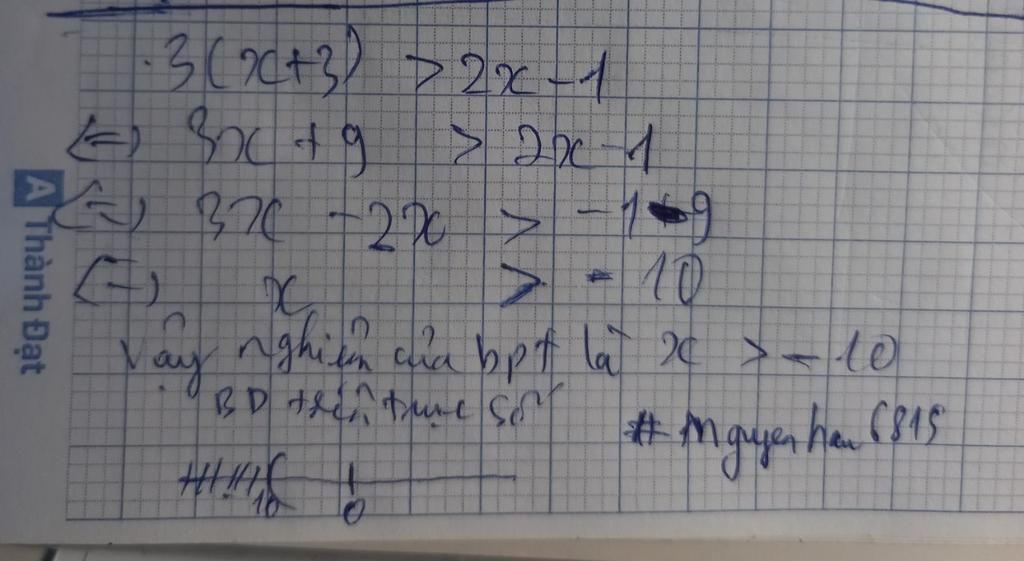 3(x+3) > 2x-1
(=) 3x + 9 > 2x-1
(=) 3x - 2x > -1-9
(=) x > - 10
Vậy nghiệm của bpt là x > - 10
BD trên trục số
# nguyenhan6815
10 0
A Thành Đạt